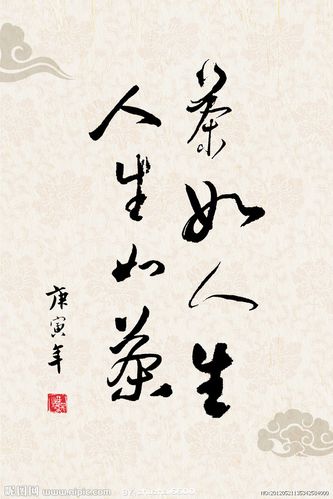 茶如人生
人生如茶
庚寅年
昵图网 www.nipic.com
NO:20120521135342504000